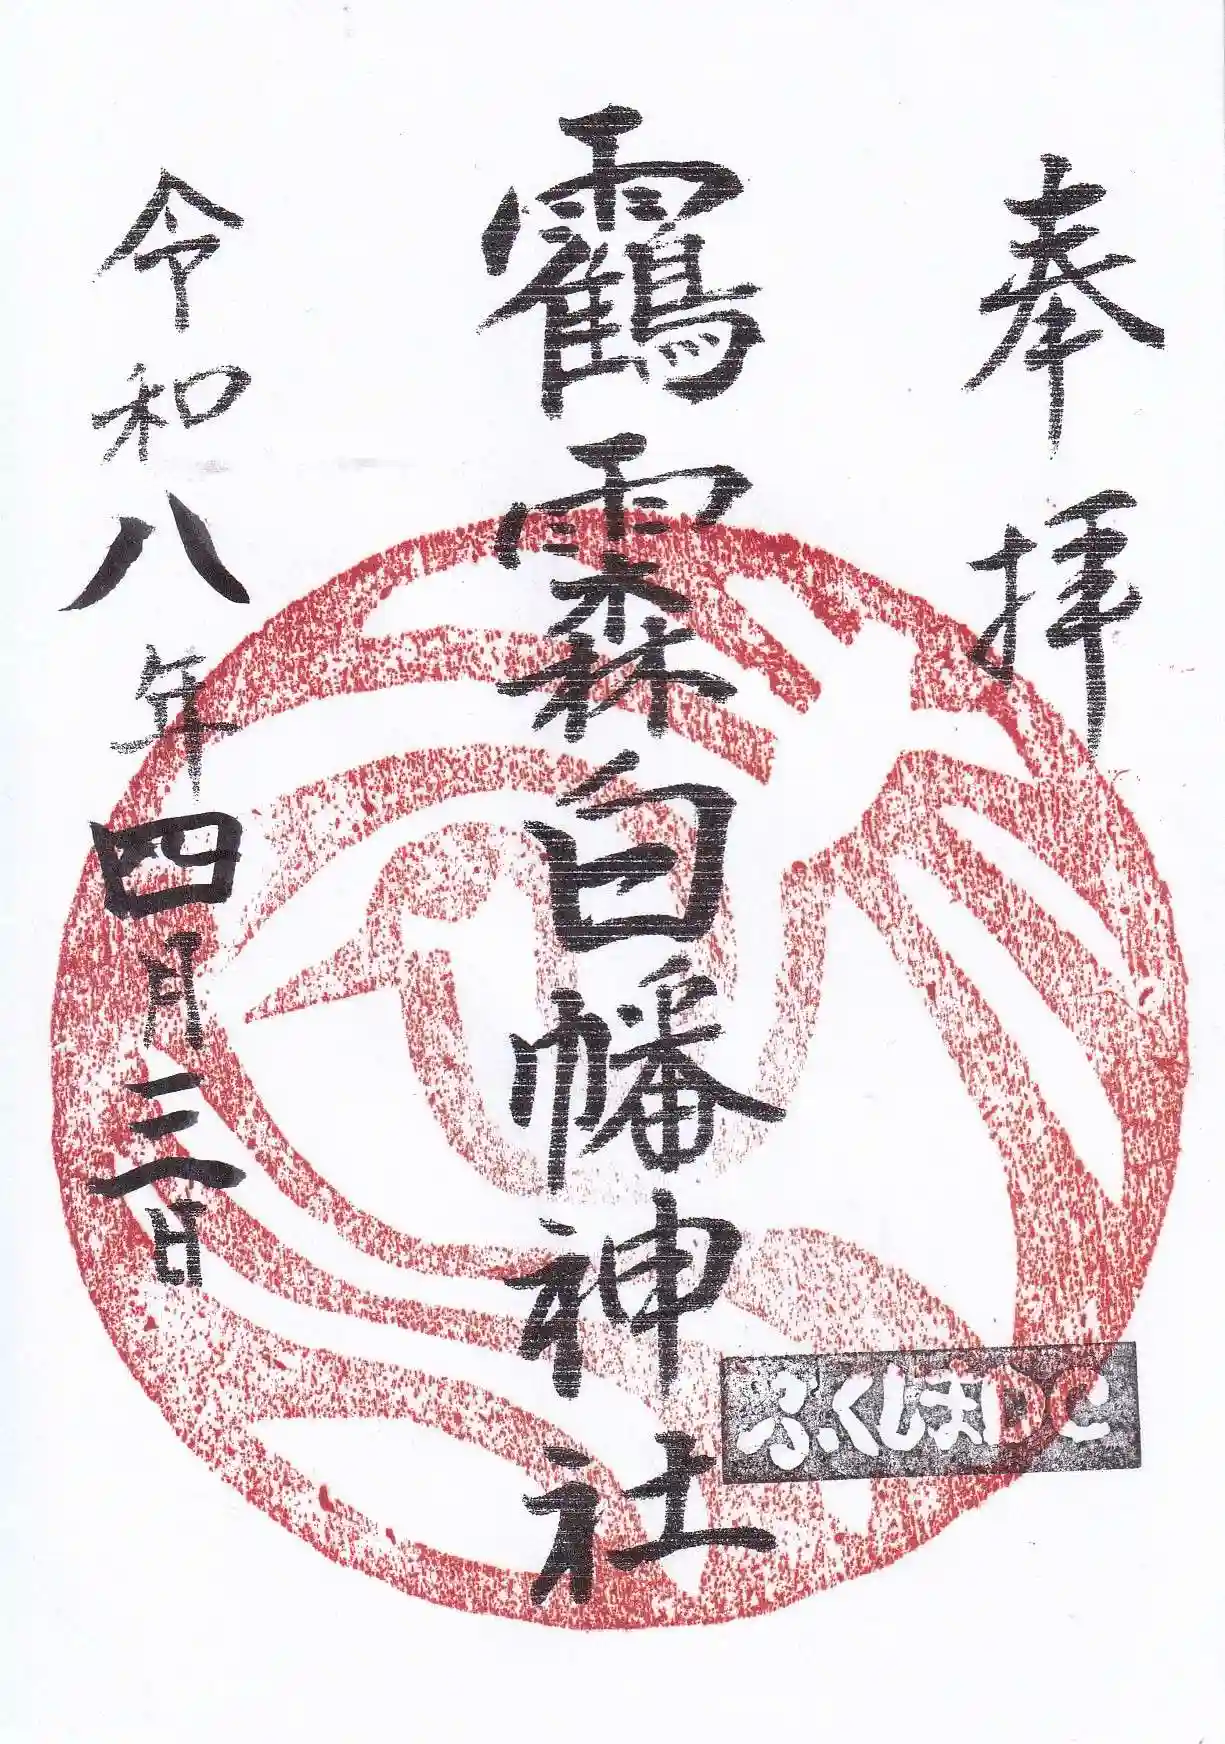 奉拝
靏
白幡神社
令和八年四月三日
ふくしまDC